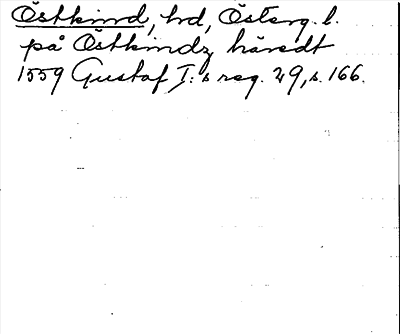 Östkind, hd, Österg. l.
på Östkindz häredt
1559 Gustaf I:s reg. 29, s. 166.